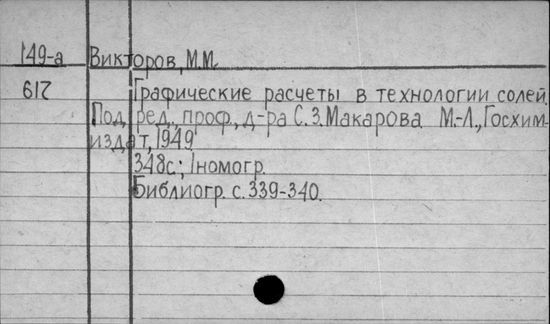 149-а Викторов, М.М.
617 Графические расчеты в технологии солей.
Под ред. проф., д-ра С.З.Макарова М.-Л., Госхим-
издат, 1949
348с.; 1номогр.
Библиогр. с. 339-340.